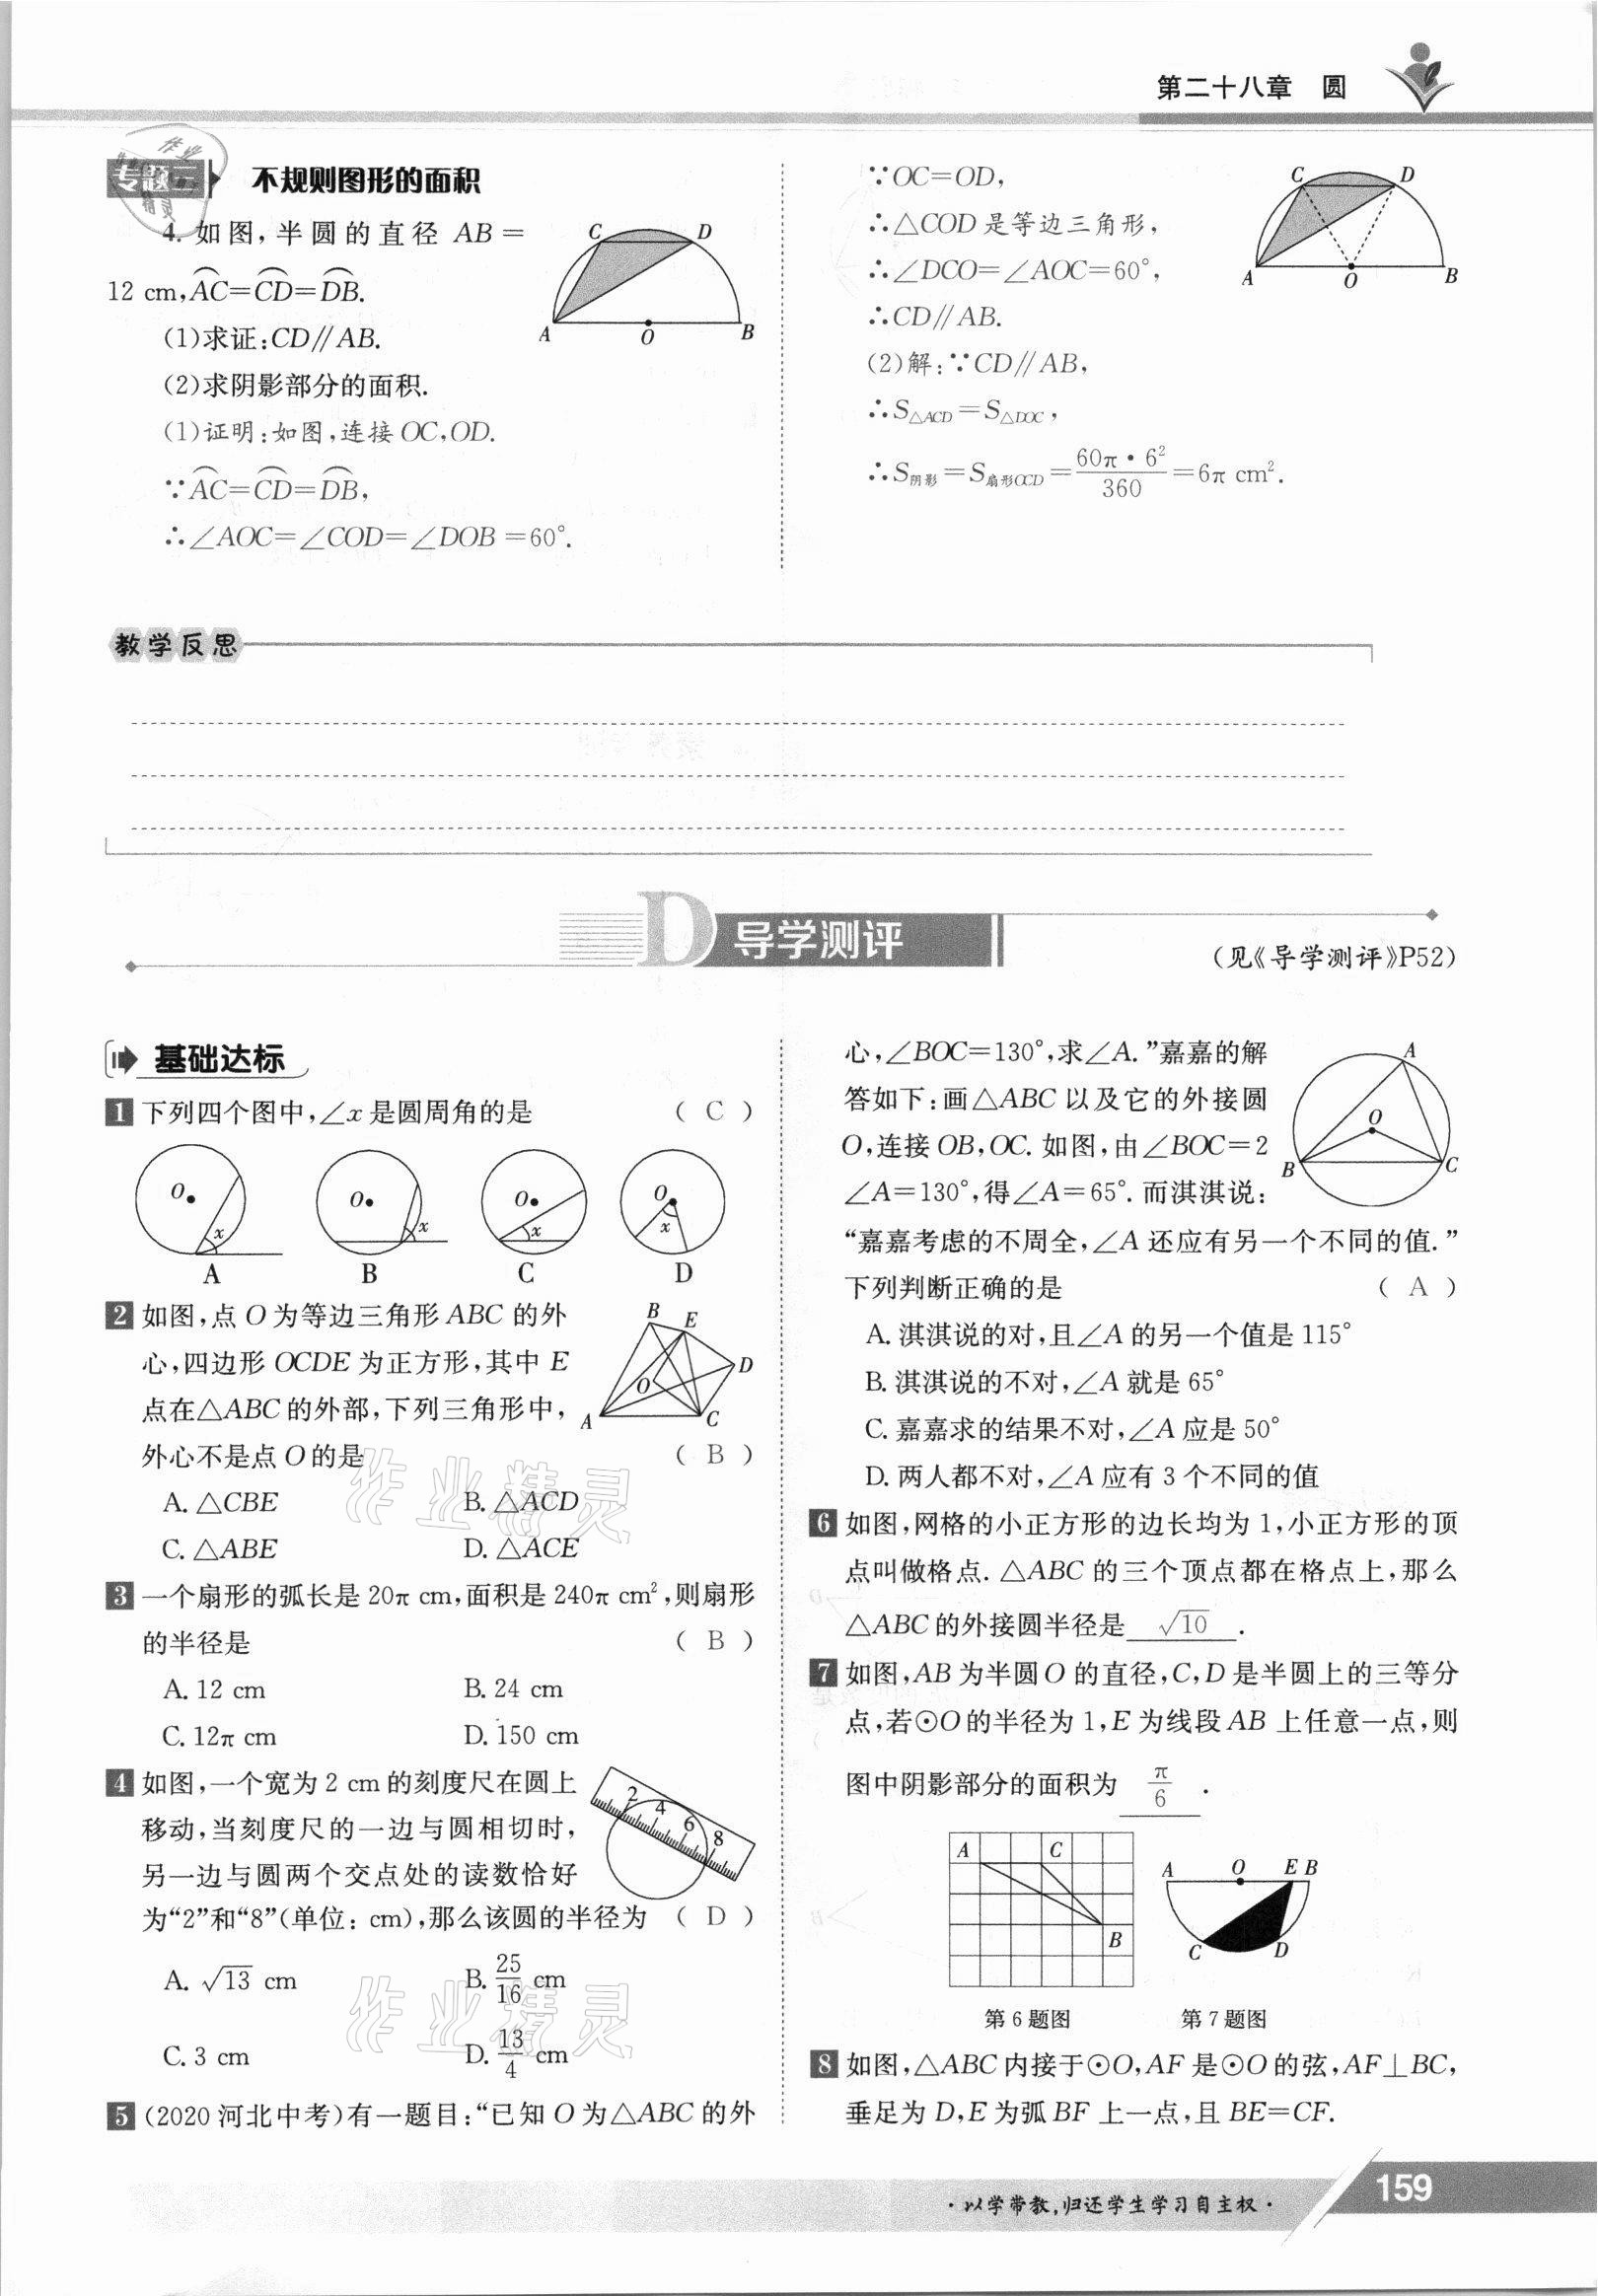 第二十八章 圆
专题二 不规则图形的面积
4. 如图,半圆的直径 AB=
12 cm,AC⌒=CD⌒=DB⌒.
(1)求证:CD∥AB.
(2)求阴影部分的面积.
(1)证明:如图,连接 OC,OD.
∵AC⌒=CD⌒=DB⌒,
∴∠AOC=∠COD=∠DOB=60°.
C D
A O B
∵OC=OD,
∴△COD 是等边三角形,
∴∠DCO=∠AOC=60°,
∴CD∥AB.
(2)解:∵CD∥AB,
∴S△ACD=S△DOC,
∴S阴影=S扇形OCD=60π·6²/360=6π cm².
C D
A O B
教学反思
D 导学测评
(见《导学测评》P52)
基础达标
1 下列四个图中,∠x 是圆周角的是 ( C )
O x O x O x O x
A B C D
2 如图,点 O 为等边三角形 ABC 的外
心,四边形 OCDE 为正方形,其中 E
点在△ABC 的外部,下列三角形中,
外心不是点 O 的是 ( B )
B E D O A C
A. △CBE B. △ACD
C. △ABE D. △ACE
3 一个扇形的弧长是 20π cm,面积是 240π cm²,则扇形
的半径是 ( B )
A. 12 cm B. 24 cm
C. 12π cm D. 150 cm
4 如图,一个宽为 2 cm 的刻度尺在圆上
移动,当刻度尺的一边与圆相切时,
另一边与圆两个交点处的读数恰好
为“2”和“8”(单位: cm),那么该圆的半径为 ( D )
2 4 6 8
A. √13 cm B. 25/16 cm
C. 3 cm D. 13/4 cm
5 (2020 河北中考)有一题目:“已知 O 为△ABC 的外
心,∠BOC=130°,求∠A.”嘉嘉的解
答如下:画△ABC 以及它的外接圆
O,连接 OB,OC. 如图,由∠BOC=2
∠A=130°,得∠A=65°. 而淇淇说:
“嘉嘉考虑的不周全,∠A 还应有另一个不同的值.”
下列判断正确的是 ( A )
A O B C
A. 淇淇说的对,且∠A 的另一个值是 115°
B. 淇淇说的不对,∠A 就是 65°
C. 嘉嘉求的结果不对,∠A 应是 50°
D. 两人都不对,∠A 应有 3 个不同的值
6 如图,网格的小正方形的边长均为 1,小正方形的顶
点叫做格点. △ABC 的三个顶点都在格点上,那么
△ABC 的外接圆半径是 √10 .
7 如图,AB 为半圆 O 的直径,C,D 是半圆上的三等分
点,若⊙O 的半径为 1,E 为线段 AB 上任意一点,则
图中阴影部分的面积为 π/6 .
A C B
A O E B C D
第 6 题图 第 7 题图
8 如图,△ABC 内接于⊙O,AF 是⊙O 的弦,AF⊥BC,
垂足为 D,E 为弧 BF 上一点,且 BE=CF.
·以学带教,归还学生学习自主权·
159
作业精灵
作业精灵